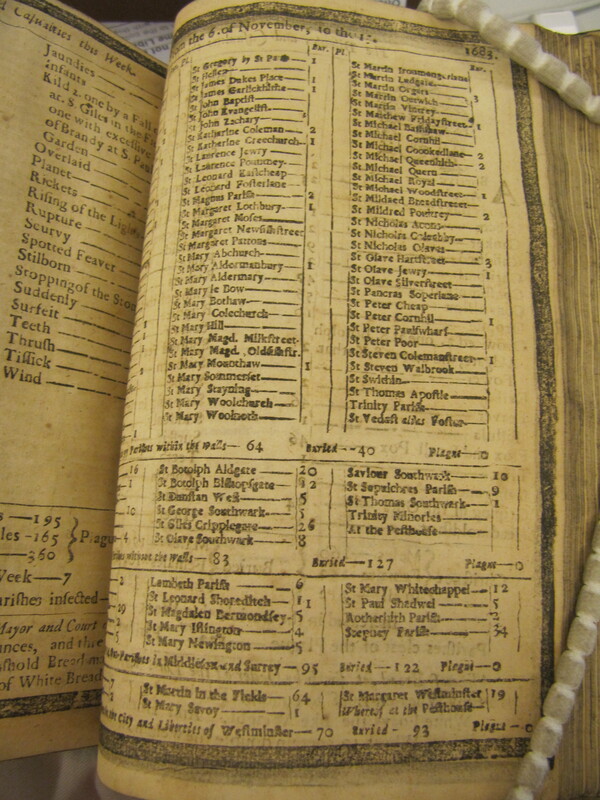 Casualties this Week.
Jaundies
Infants
Kild 2. one by a Fall
at S. Giles in the
one with excessive
of Brandy at S. Paul
Garden
Overlaid
Planet
Rickets
Rising of the Lights
Rupture
Scurvy
Spotted Feaver
Stilborn
Stopping of the Stom
Suddenly
Surfeit
Teeth
Thrush
Tissick
Wind
—195
—165
—360
Plag
Week—7
Parishes infected
Mayor and Court
the 6. of November, to the 13. 1683.
Bur. Pl. Bur.
St Gregory by St Paul—1
St Hellen
St James Dukes Place—1
St James Garlickhithe—1
St John Baptist
St John Evangelist
St John Zachary
St Katharine Coleman—2
St Katharine Creechurch—1
St Lawrence Jewry
St Lawrence Pountney
St Leonard Eastcheap
St Leonard Fosterlane
St Magnus Parish—2
St Margaret Lothbury—1
St Margaret Moses
St Margaret Newfishstreet
St Margaret Pattons
St Mary Abchurch
St Mary Aldermanbury—1
St Mary Aldermary
St Mary le Bow
St Mary Bothaw
St Mary Colechurch
St Mary Hill
St Mary Magd. Milkstreet
St Mary Magd. Oldfishstr.
St Mary Mounthaw—1
St Mary Sommerset
St Mary Stayning
St Mary Woolchurch
St Mary Woolnoth
St Martin Ironmongerlane
St Martin Ludgate
St Martin Orgars
St Martin Outwich—3
St Martin Vintrey
St Matthew Fridaystreet—1
St Michael Bassishaw
St Michael Cornhil
St Michael Crookedlane—2
St Michael Queenhith—2
St Michael Quern
St Michael Royal
St Michael Woodstreet—1
St Mildred Breadstreet
St Mildred Poultrey—2
St Nicholas Acons
St Nicholas Coleabby
St Nicholas Olaves
St Olave Hartstreet—3
St Olave Jewry—1
St Olave Silverstreet
St Pancras Soperlane
St Peter Cheap
St Peter Cornhil—1
St Peter Paulswharf
St Peter Poor
St Steven Colemanstreet—1
St Steven Walbrook
St Swithin
St Thomas Apostle
Trinity Parish
St Vedast alias Foster
Parishes within the Walls—64 Buried—40 Plague—0
St Botolph Aldgate—20
St Botolph Bishopsgate
St Dunstan West—5
St George Southwark—5
St Giles Cripplegate—26
St Olave Southwark—8
Saviour Southwark—10
St Sepulchres Parish—9
St Thomas Southwark—1
Trinity Minories
At the Pesthouse
without the Walls—83 Buried—127 Plague—0
Lambeth Parish—6
St Leonard Shoreditch—11
St Magdalen Bermondsey—5
St Mary Islington—4
St Mary Newington—5
St Mary Whitechappel—12
St Paul Shadwel—5
Rotherhith Parish—2
Stepney Parish—34
Parishes in Middlesex and Surrey—95 Buried—122 Plague—0
St Martin in the Fields—64
St Mary Savoy—1
St Margaret Westminster 19
Whereof at the Pesthouse
the City and Liberties of Westminster—70 Buried—93 Plague—0